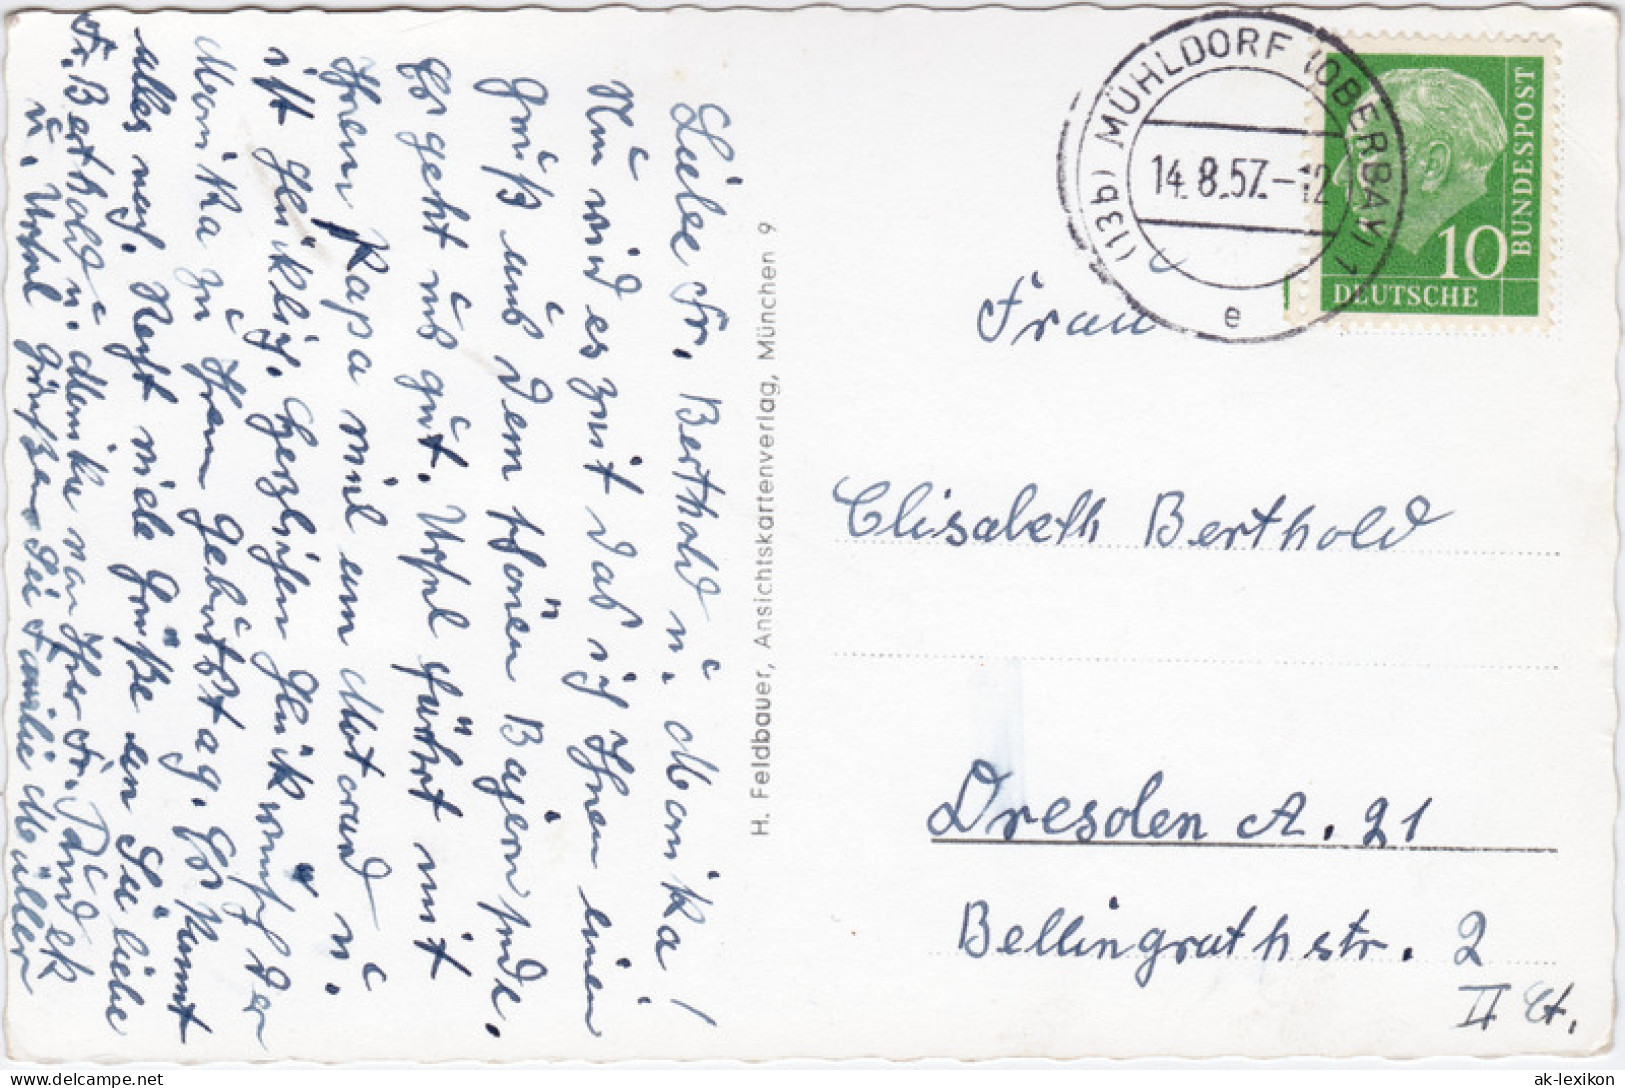 Liebe Fr. Berthold u. Monika!
Nun wird es zeit das ich Ihnen einen
Gruß aus dem schönen Bayern sende.
Es geht uns gut. Ursel fährt mit
Ihren Papa viel am Motorrad u.
ist glücklich. Herzlichen Glückwunsch der
Monika zu Ihren Geburtstag. Es kommt
alles noch. Recht viele Grüße an Sie liebe
Fr. Berthold u. Monika von Ihrer Fr.
u. Ursel grüßen Sie Familie Müller
H. Feldbauer, Ansichtskartenverlag, München 9
(13b) MÜHLDORF (OBERBAY) 1
14.8.57.-12
e
10
DEUTSCHE
BUNDESPOST
Frau
Elisabeth Berthold
Dresden A. 21
Bellingrathstr. 2
II Et.
ak-lexikon